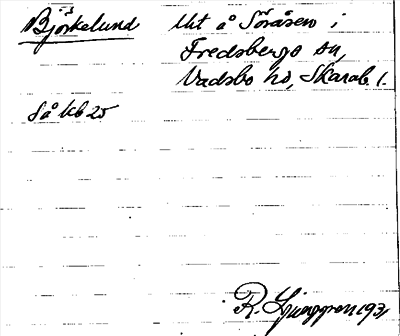 Björkelund Lht å Söråsen i
Fredsbergs sn,
Vadsbo hd, Skarab. l.
Så kb 25
R. Ljunggren 1931